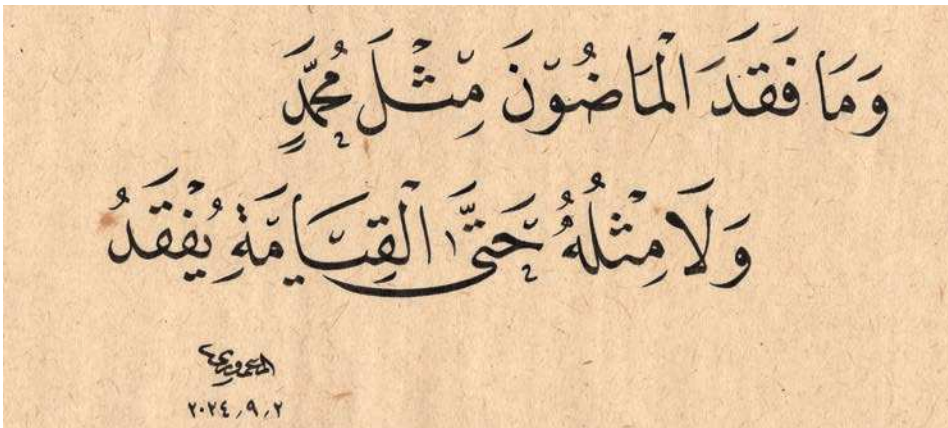 وَمَا فَقَدَ الْمَاضُونَ مِثْلَ مُحَمَّدٍ
وَلَا مِثْلُهُ حَتَّى الْقِيَامَةِ يُفْقَدُ
٢٠٢٤٫٩٫٢